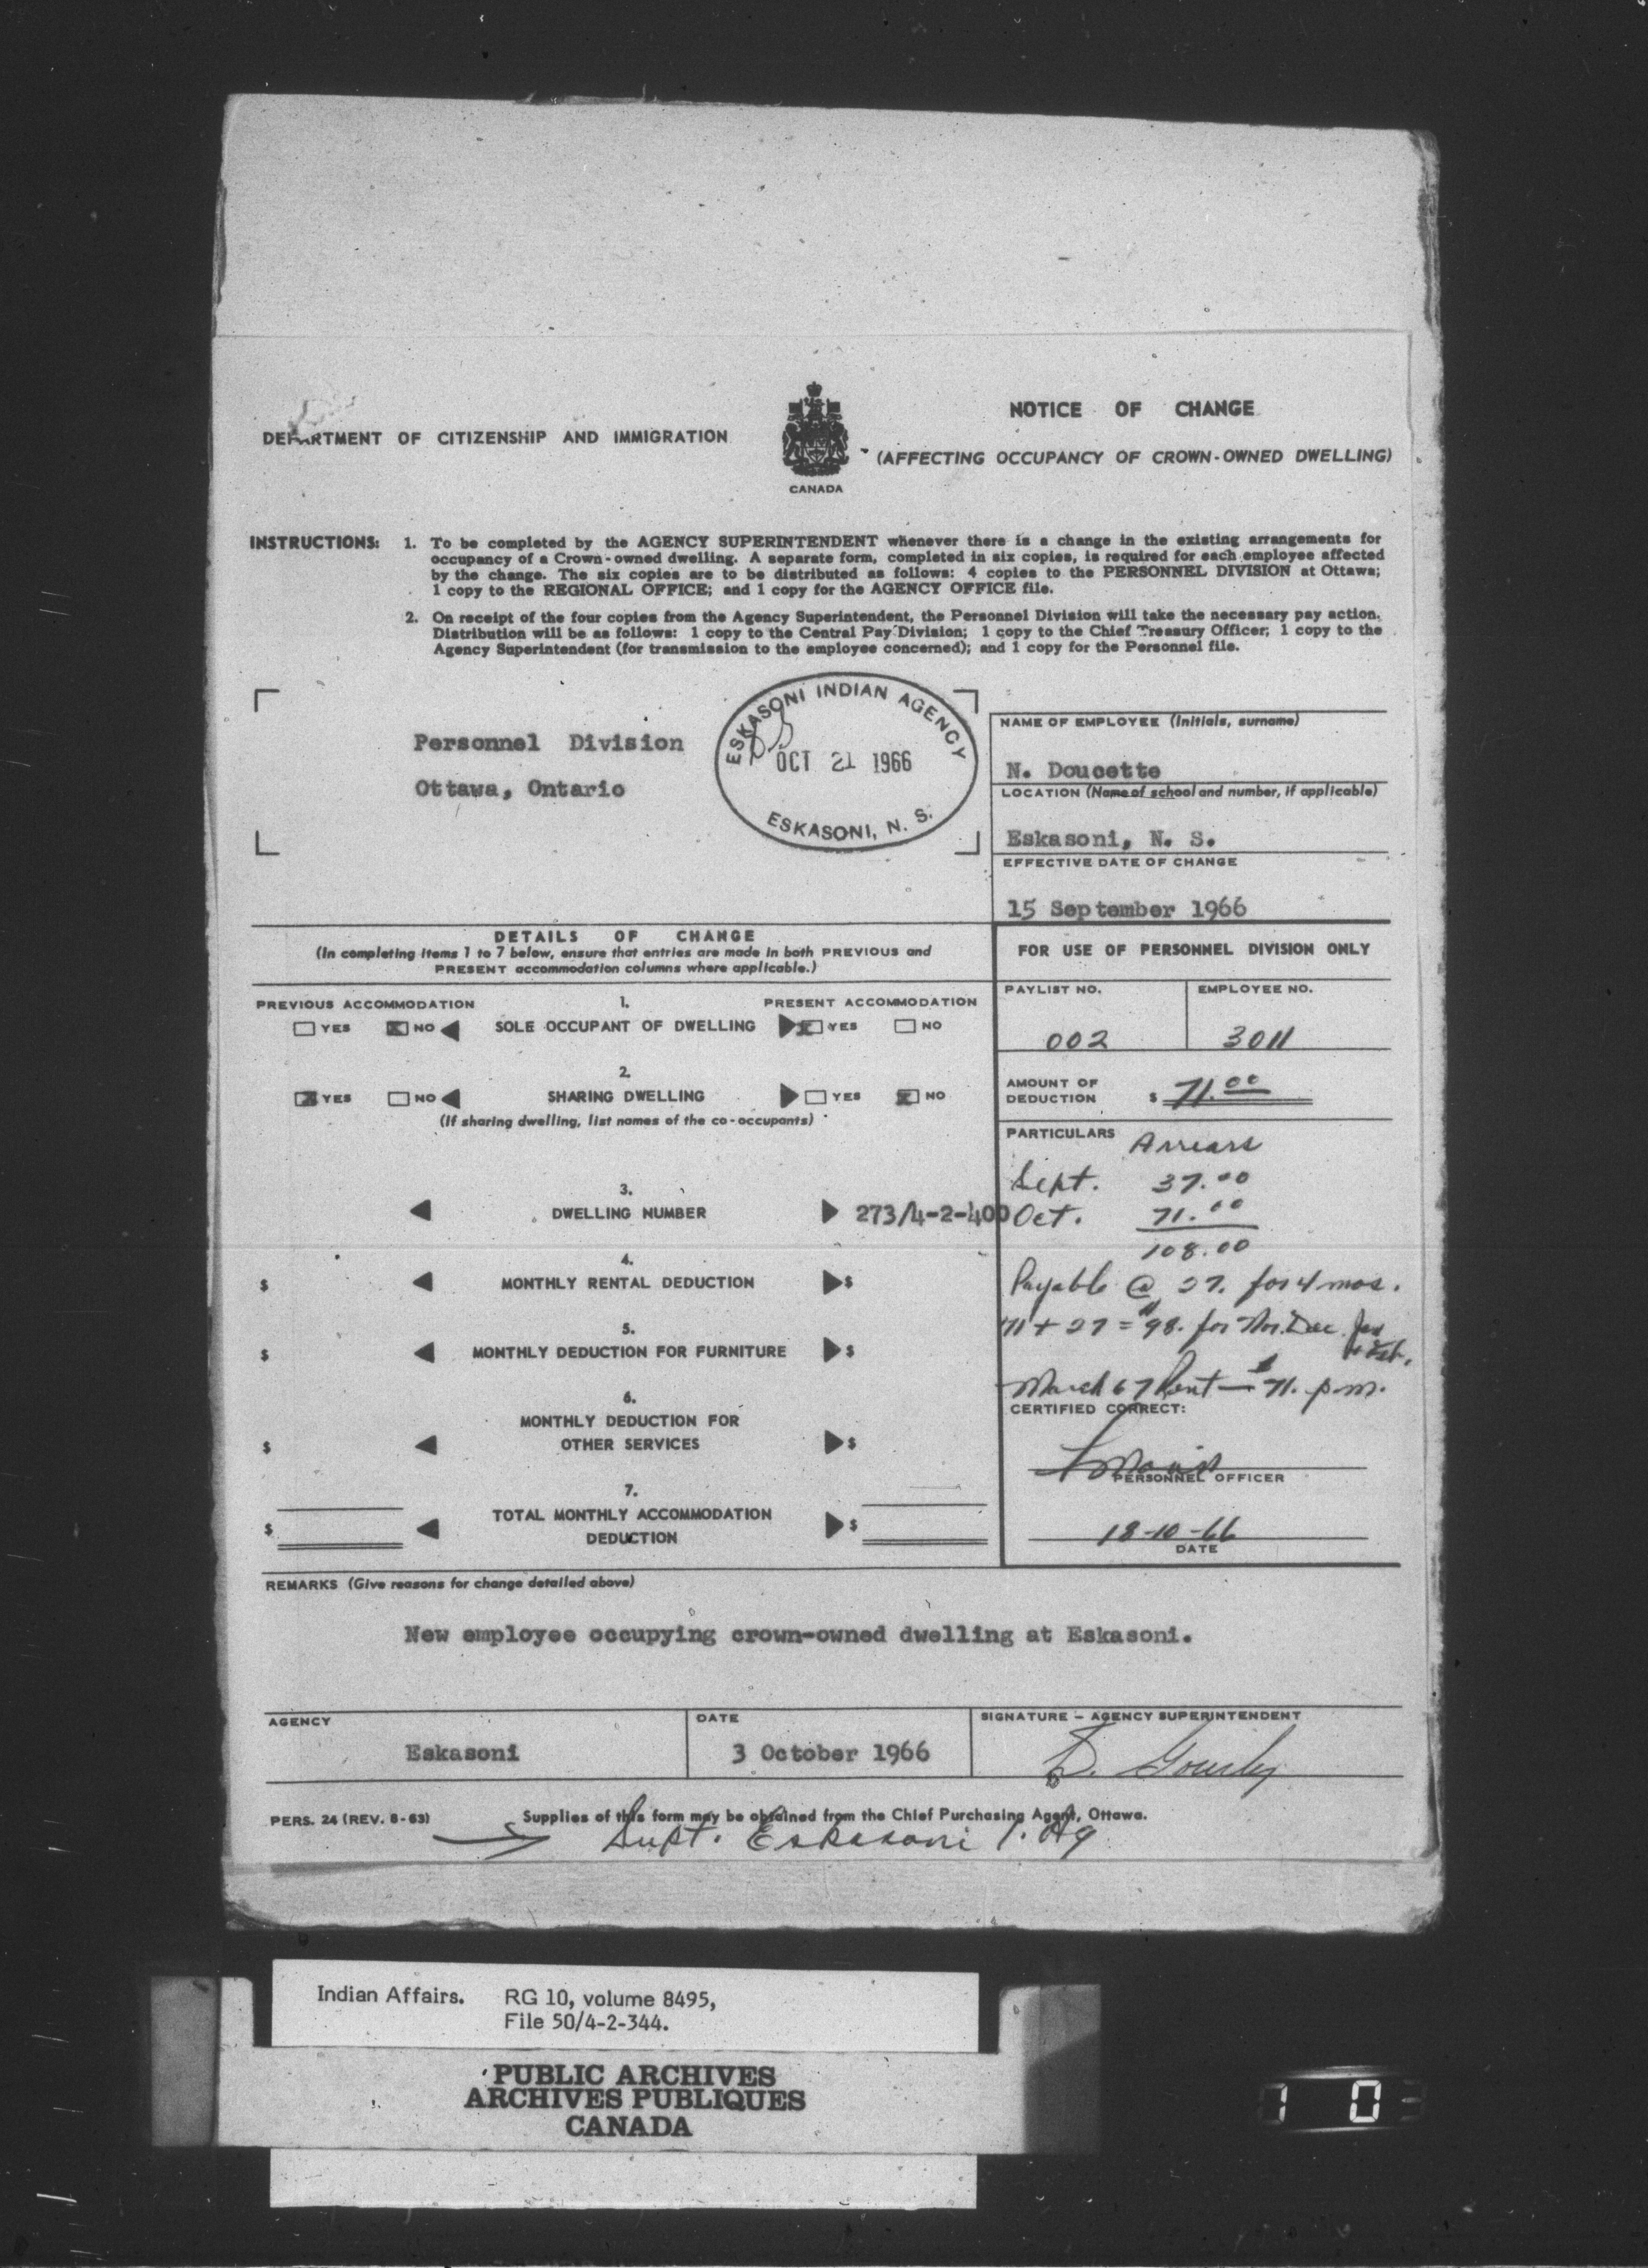 DEPARTMENT OF CITIZENSHIP AND IMMIGRATION
CANADA
NOTICE OF CHANGE
(AFFECTING OCCUPANCY OF CROWN-OWNED DWELLING)
INSTRUCTIONS: 1. To be completed by the AGENCY SUPERINTENDENT whenever there is a change in the existing arrangements for
occupancy of a Crown-owned dwelling. A separate form, completed in six copies, is required for each employee affected
by the change. The six copies are to be distributed as follows: 4 copies to the PERSONNEL DIVISION at Ottawa;
1 copy to the REGIONAL OFFICE; and 1 copy for the AGENCY OFFICE file.
2. On receipt of the four copies from the Agency Superintendent, the Personnel Division will take the necessary pay action.
Distribution will be as follows: 1 copy to the Central Pay Division; 1 copy to the Chief Treasury Officer; 1 copy to the
Agency Superintendent (for transmission to the employee concerned); and 1 copy for the Personnel file.
Personnel Division
Ottawa, Ontario
ESKASONI INDIAN AGENCY
OCT 21 1966
ESKASONI, N. S.
NAME OF EMPLOYEE (Initials, surname)
N. Doucette
LOCATION (Name of school and number, if applicable)
Eskasoni, N. S.
EFFECTIVE DATE OF CHANGE
15 September 1966
DETAILS OF CHANGE
(In completing items 1 to 7 below, ensure that entries are made in both PREVIOUS and
PRESENT accommodation columns where applicable.)
PREVIOUS ACCOMMODATION 1. PRESENT ACCOMMODATION
YES X NO SOLE OCCUPANT OF DWELLING X YES NO
2.
X YES NO SHARING DWELLING YES X NO
(If sharing dwelling, list names of the co-occupants)
3.
DWELLING NUMBER 273/4-2-400
4.
$ MONTHLY RENTAL DEDUCTION $
5.
$ MONTHLY DEDUCTION FOR FURNITURE $
6.
MONTHLY DEDUCTION FOR
$ OTHER SERVICES $
7.
TOTAL MONTHLY ACCOMMODATION
$ DEDUCTION $
FOR USE OF PERSONNEL DIVISION ONLY
PAYLIST NO. EMPLOYEE NO.
002 3011
AMOUNT OF
DEDUCTION $ 71.00
PARTICULARS Arrears
Sept. 37.00
Oct. 71.00
108.00
Payable @ 27. for 4 mos.
71 + 27 = 98. for Nov. Dec. Jan
+ Feb.
March 67 Rent — $71. p.m.
CERTIFIED CORRECT:
PERSONNEL OFFICER
18-10-66
DATE
REMARKS (Give reasons for change detailed above)
New employee occupying crown-owned dwelling at Eskasoni.
AGENCY DATE SIGNATURE - AGENCY SUPERINTENDENT
Eskasoni 3 October 1966
PERS. 24 (REV. 8-63) Supplies of this form may be obtained from the Chief Purchasing Agent, Ottawa.
Supt. Eskasoni I. Ag
Indian Affairs. RG 10, volume 8495,
File 50/4-2-344.
PUBLIC ARCHIVES
ARCHIVES PUBLIQUES
CANADA
1 0